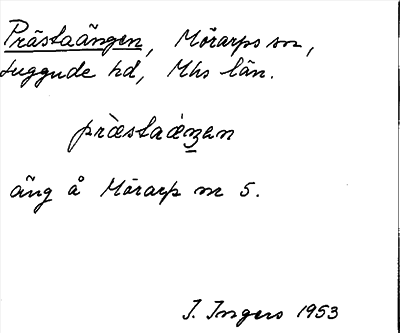 Prästaängen, Mörarps sn,
Luggude hd, Mhs län.
præ̀staǽŋən
äng å Mörarp nr 5.
I. Ingers 1953